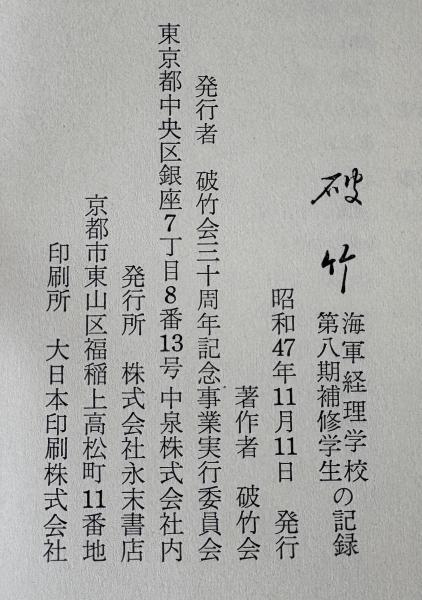 破竹
海軍経理学校
第八期補修学生
の記録
昭和47年11月11日 発行
著作者 破竹会
発行者 破竹会三十周年記念事業実行委員会
東京都中央区銀座7丁目8番13号中泉株式会社内
発行所 株式会社永末書店
京都市東山区福稲上高松町11番地
印刷所 大日本印刷株式会社